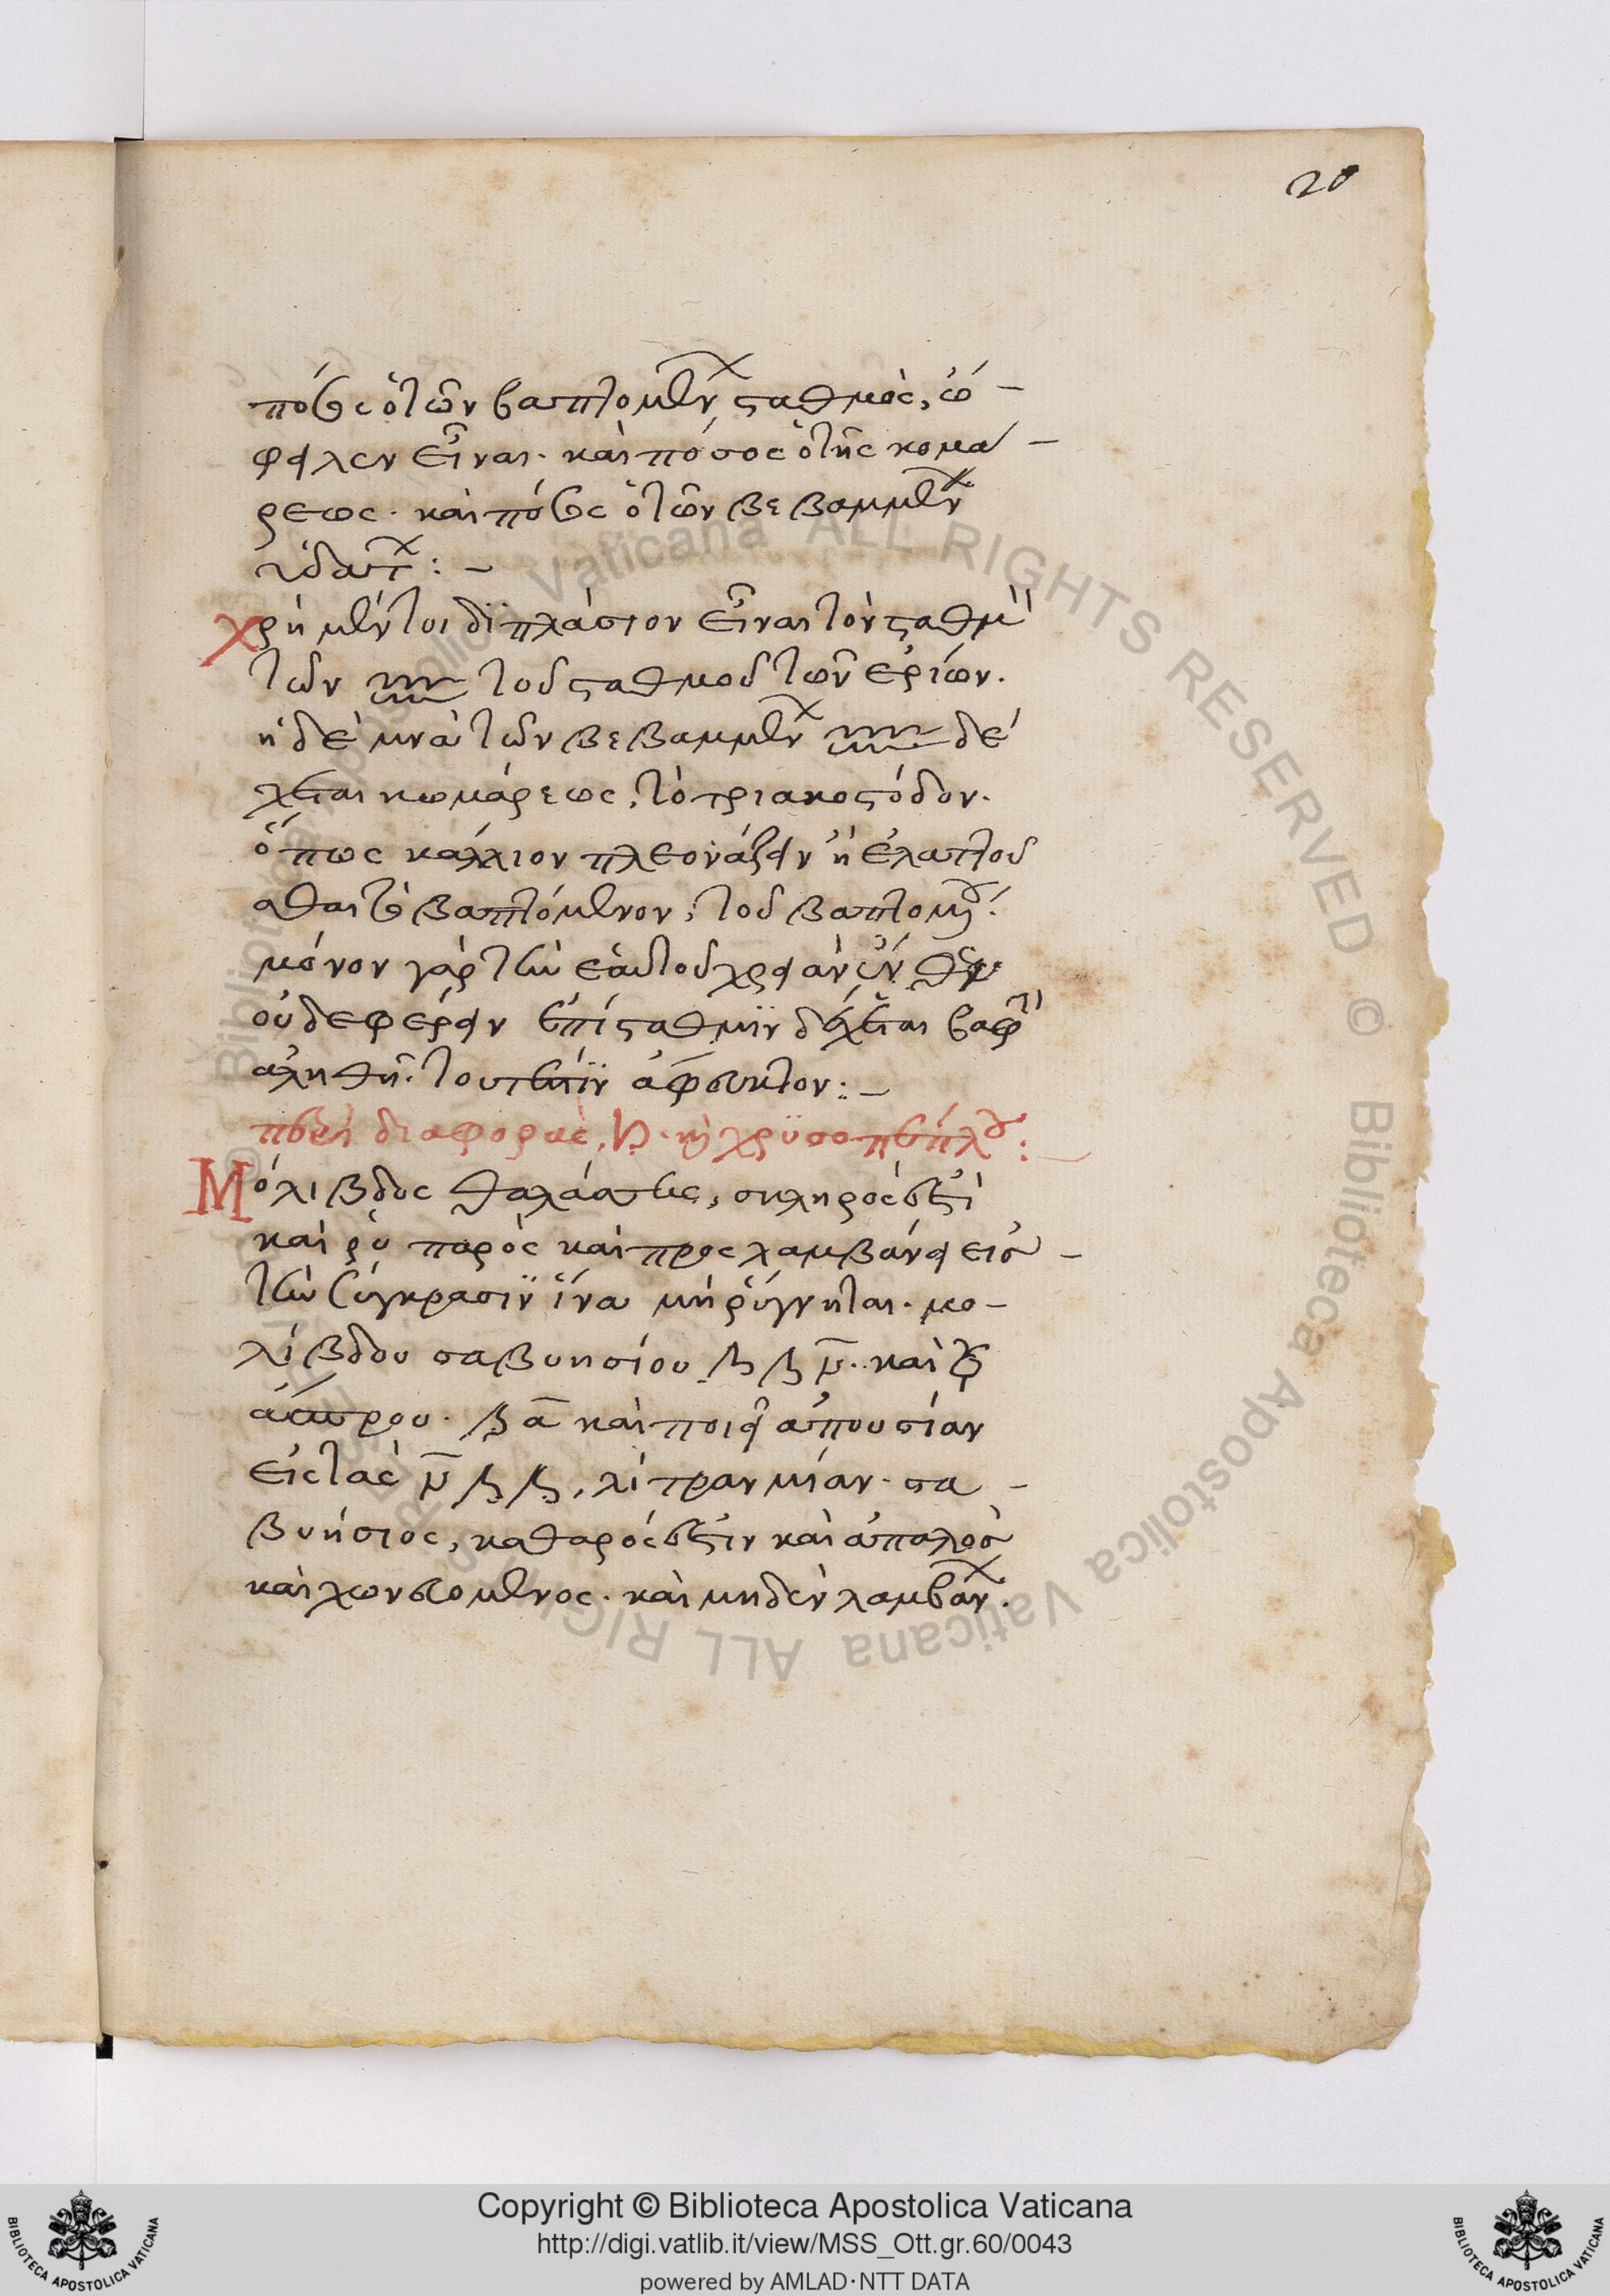 20
πόσος ὁ τῶν βαπτομένων σταθμὸς, ὤ-
φειλεν εἶναι. καὶ πόσος ὁ τῆς κομά-
ρεως. καὶ πόσος ὁ τῶν βεβαμμένων
ὑδάτων:-
χρὴ μέντοι διπλάσιον εἶναι τὸν σταθμὸν
τῶν τοῦ σταθμοῦ τῶν ἐρίων.
ἡ δὲ μνᾶ τῶν βεβαμμένων δέ
χεται κωμάρεως, τὸ τριακοστόδυον.
ὅπως κάλλιον πλεονάζειν ἢ ἐλαττοῦ
σθαι τὸ βαπτόμενον, τοῦ βαπτομένου.
μόνον γὰρ τὴν ἑαυτοῦ χρείαν
οὐδε φέρειν ἐπίσταθμιν δέχεται βαφὴν
ἀληθῆ. τουτέστιν ἄφευκτον:-
περὶ διαφορᾶς, χρυσοπετάλου:-
Μόλιβδος θαλάσσιος, σκληρός ἐστὶ
καὶ ῥυπαρὸς καὶ προσλαμβάνει εἰς-
τὴν σύγκρασιν ἵνα μὴ ῥύγνηται. μο-
λίβδου σαβυησίου μ. καὶ
ἀσπρου. α καὶ ποιεῖ ἀπουσίαν
εἰς τὰς μ, λίτραν μίαν. σα-
βυήσιος, καθαρός ἐστιν καὶ ἁπαλὸς
καὶ χωνευόμενος. καὶ μηδὲν λαμβάνων.
Copyright © Biblioteca Apostolica Vaticana
http://digi.vatlib.it/view/MSS_Ott.gr.60/0043
powered by AMLAD·NTT DATA